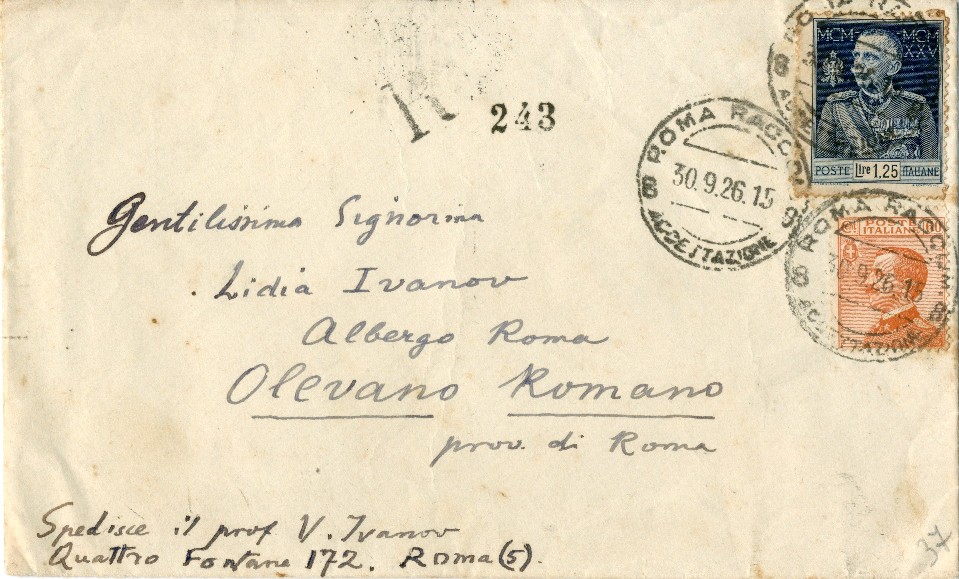 R 243
ROMA RACC
30.9.26.15
8
ACCETTAZIONE
MCM MCM
XXV
POSTE Lire 1.25 ITALIANE
ROMA RACC
30.9.26.15
8
ACCETTAZIONE
POSTE
ITALIANE
Gentilissima Signorina
Lidia Ivanov
Albergo Roma
Olevano Romano
prov. di Roma
Spedisce il prof V. Ivanov
Quattro Fontane 172. Roma (5).
37